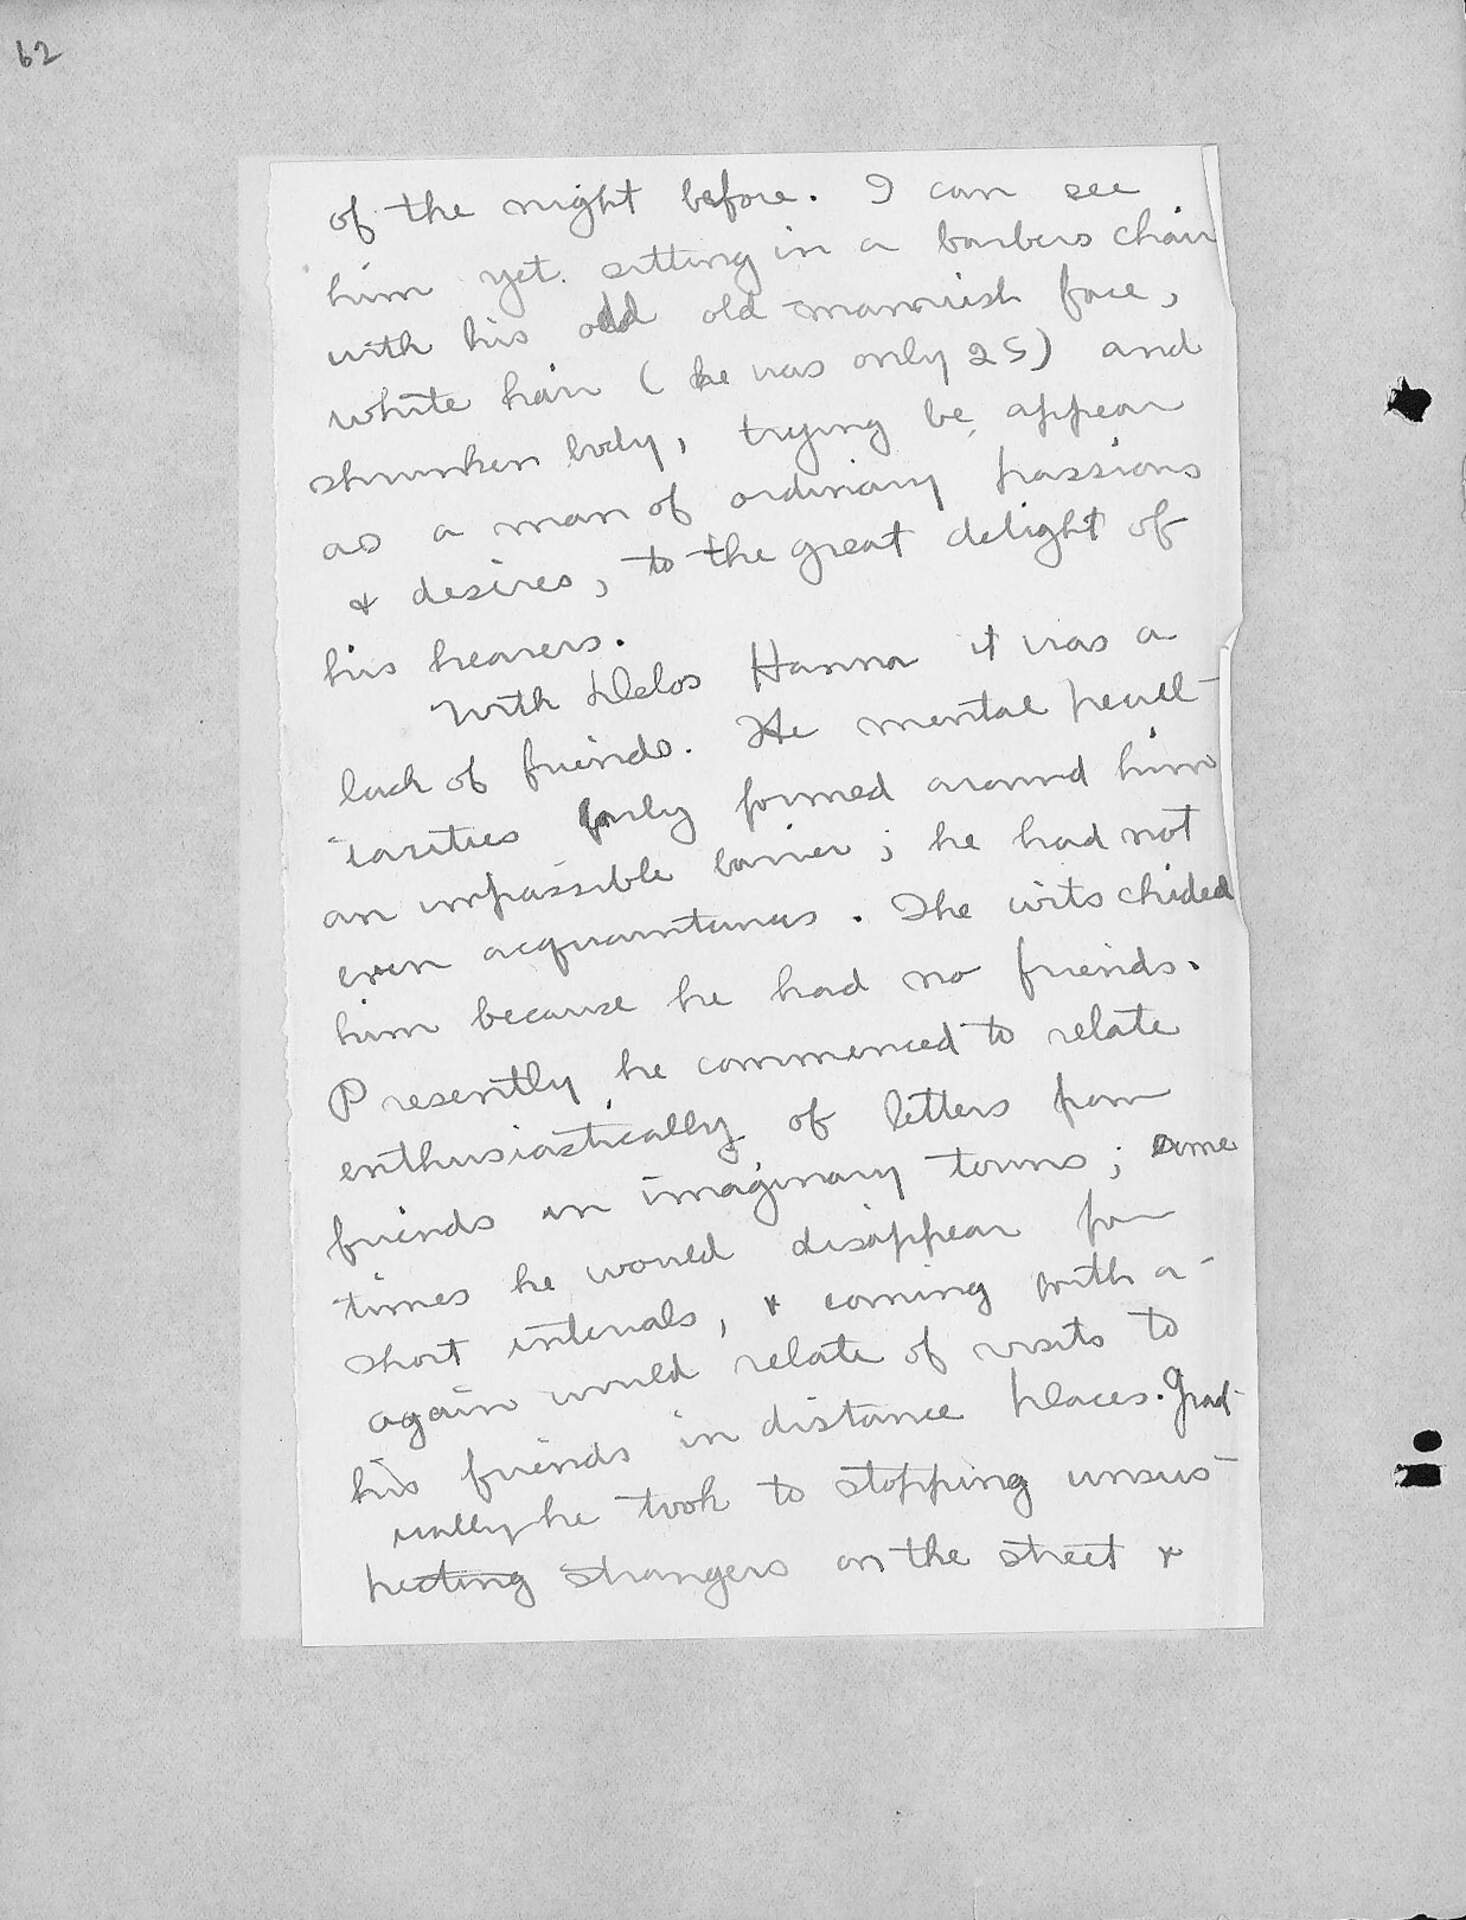 62
of the night before. I can see
him yet sitting in a barbers chair
with his odd old mannish face,
white hair (he was only 25) and
shrunken body, trying be appear
as a man of ordinary passions
& desires, to the great delight of
his hearers.
With Delos Hanna it was a
lack of friends. He mental pecul-
iarities early formed around him
an impassible barrier; he had not
even acquaintances. The wits chided
him because he had no friends.
Presently he commenced to relate
enthusiastically of letters from
friends in imaginary towns; some
times he would disappear for
short intervals, & coming with a-
again would relate of visits to
his friends in distance places. Grad-
ually he took to stopping unsus-
pecting strangers on the street &